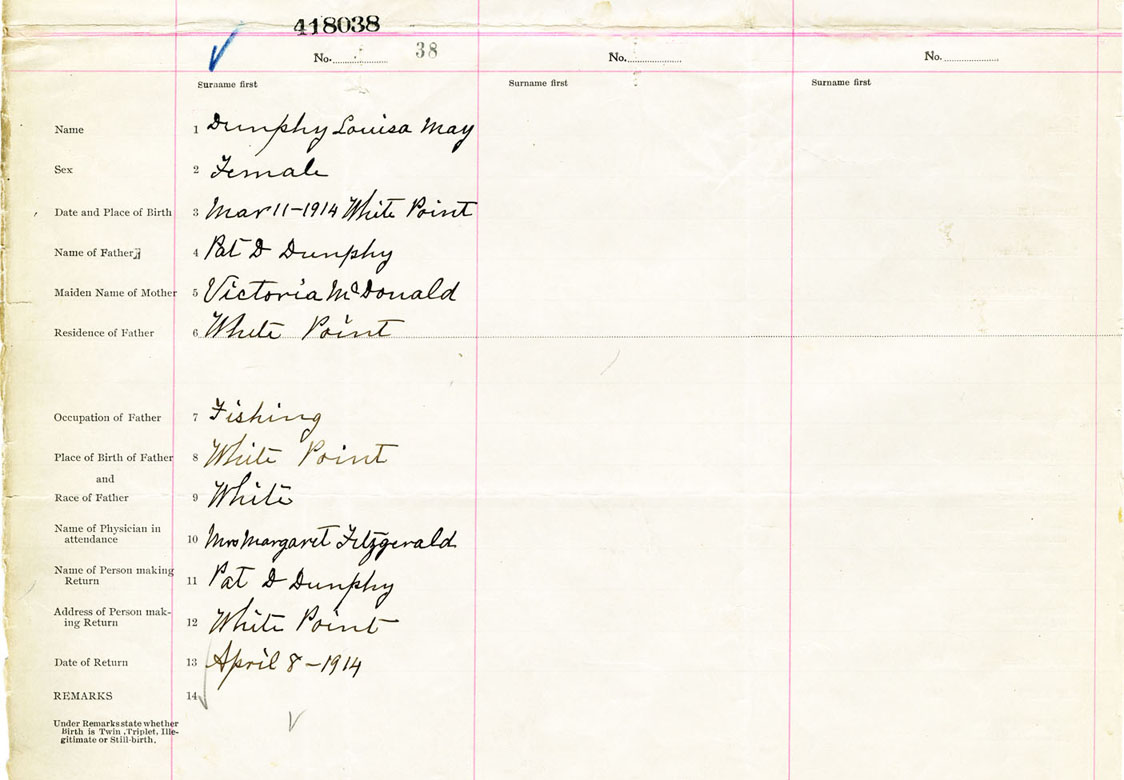 418038
No. 38 No. No.
Surname first Surname first Surname first
Name 1 Dunphy Louisa May
Sex 2 Female
Date and Place of Birth 3 Mar 11-1914 White Point
Name of Father 4 Pat D Dunphy
Maiden Name of Mother 5 Victoria McDonald
Residence of Father 6 White Point
Occupation of Father 7 Fishing
Place of Birth of Father 8 White Point
and
Race of Father 9 White
Name of Physician in
attendance 10 Mrs Margaret Fitzgerald
Name of Person making
Return 11 Pat D Dunphy
Address of Person mak-
ing Return 12 White Point
Date of Return 13 April 8-1914
REMARKS 14
Under Remarks state whether
Birth is Twin, Triplet, Ille-
gitimate or Still-birth.